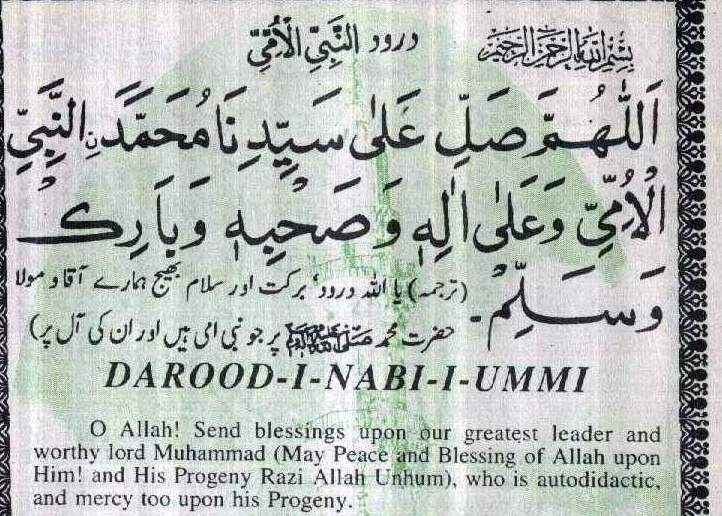 بِسْمِ اللهِ الرَّحْمٰنِ الرَّحِيْمِ
درود النَّبِيِّ الْاُمِّيِّ
اَللّٰهُمَّ صَلِّ عَلٰى سَيِّدِنَا مُحَمَّدَ نِ النَّبِيِّ
الْاُمِّيِّ وَعَلٰى اٰلِهٖ وَصَحْبِهٖ وَبَارِكْ
وَسَلِّمْ۔
(ترجمہ) یا اللہ درود، برکت اور سلام بھیج ہمارے آقا و مولا
حضرت محمد ﷺ پر جو نبی امی ہیں اور ان کی آل پر)
DAROOD-I-NABI-I-UMMI
O Allah! Send blessings upon our greatest leader and
worthy lord Muhammad (May Peace and Blessing of Allah upon
Him! and His Progeny Razi Allah Unhum), who is autodidactic,
and mercy too upon his Progeny.